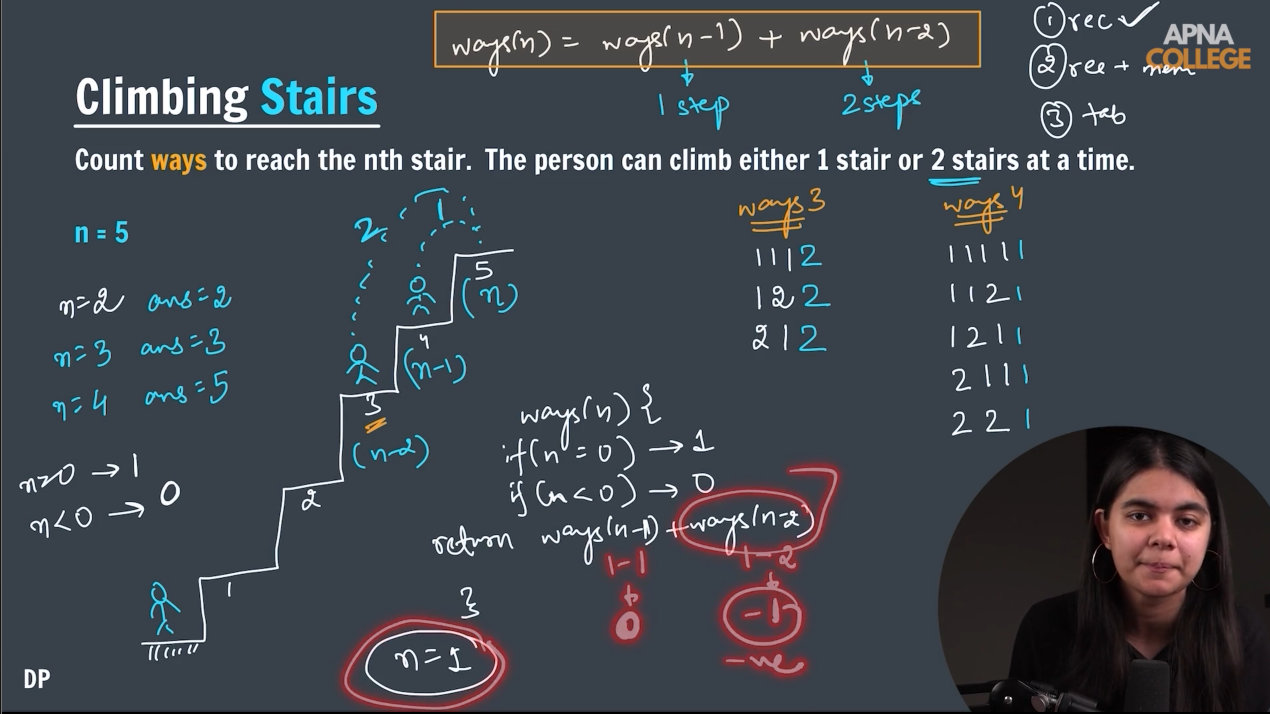 ways(n) = ways(n-1) + ways(n-2)
1 step
2 steps
① rec ✓
② rec + mem
③ tab
APNA
COLLEGE
Climbing Stairs
Count ways to reach the nth stair. The person can climb either 1 stair or 2 stairs at a time.
n = 5
n=2 ans=2
n=3 ans=3
n=4 ans=5
n=0 → 1
n<0 → 0
2 1
5
(n)
4
(n-1)
3
(n-2)
2
1
ways 3
1 1 1 2
1 2 2
2 1 2
ways 4
1 1 1 1 1
1 1 2 1
1 2 1 1
2 1 1 1
2 2 1
ways(n) {
if(n = 0) → 1
if(n < 0) → 0
return ways(n-1) + ways(n-2)
}
1-1
0
1-2
-1
-ve
n=1
DP